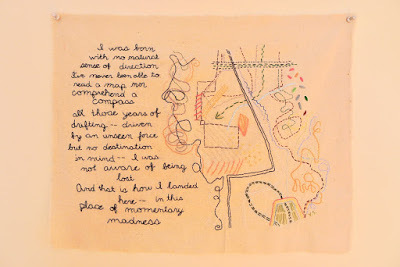 I was born
with no natural
sense of direction
I've never been able to
read a map nor
comprehend a
compass
all those years of
drifting -- driven
by an unseen force
but no destination
in mind -- I was
not aware of being
lost
And that is how I landed
here -- in this
place of momentary
madness